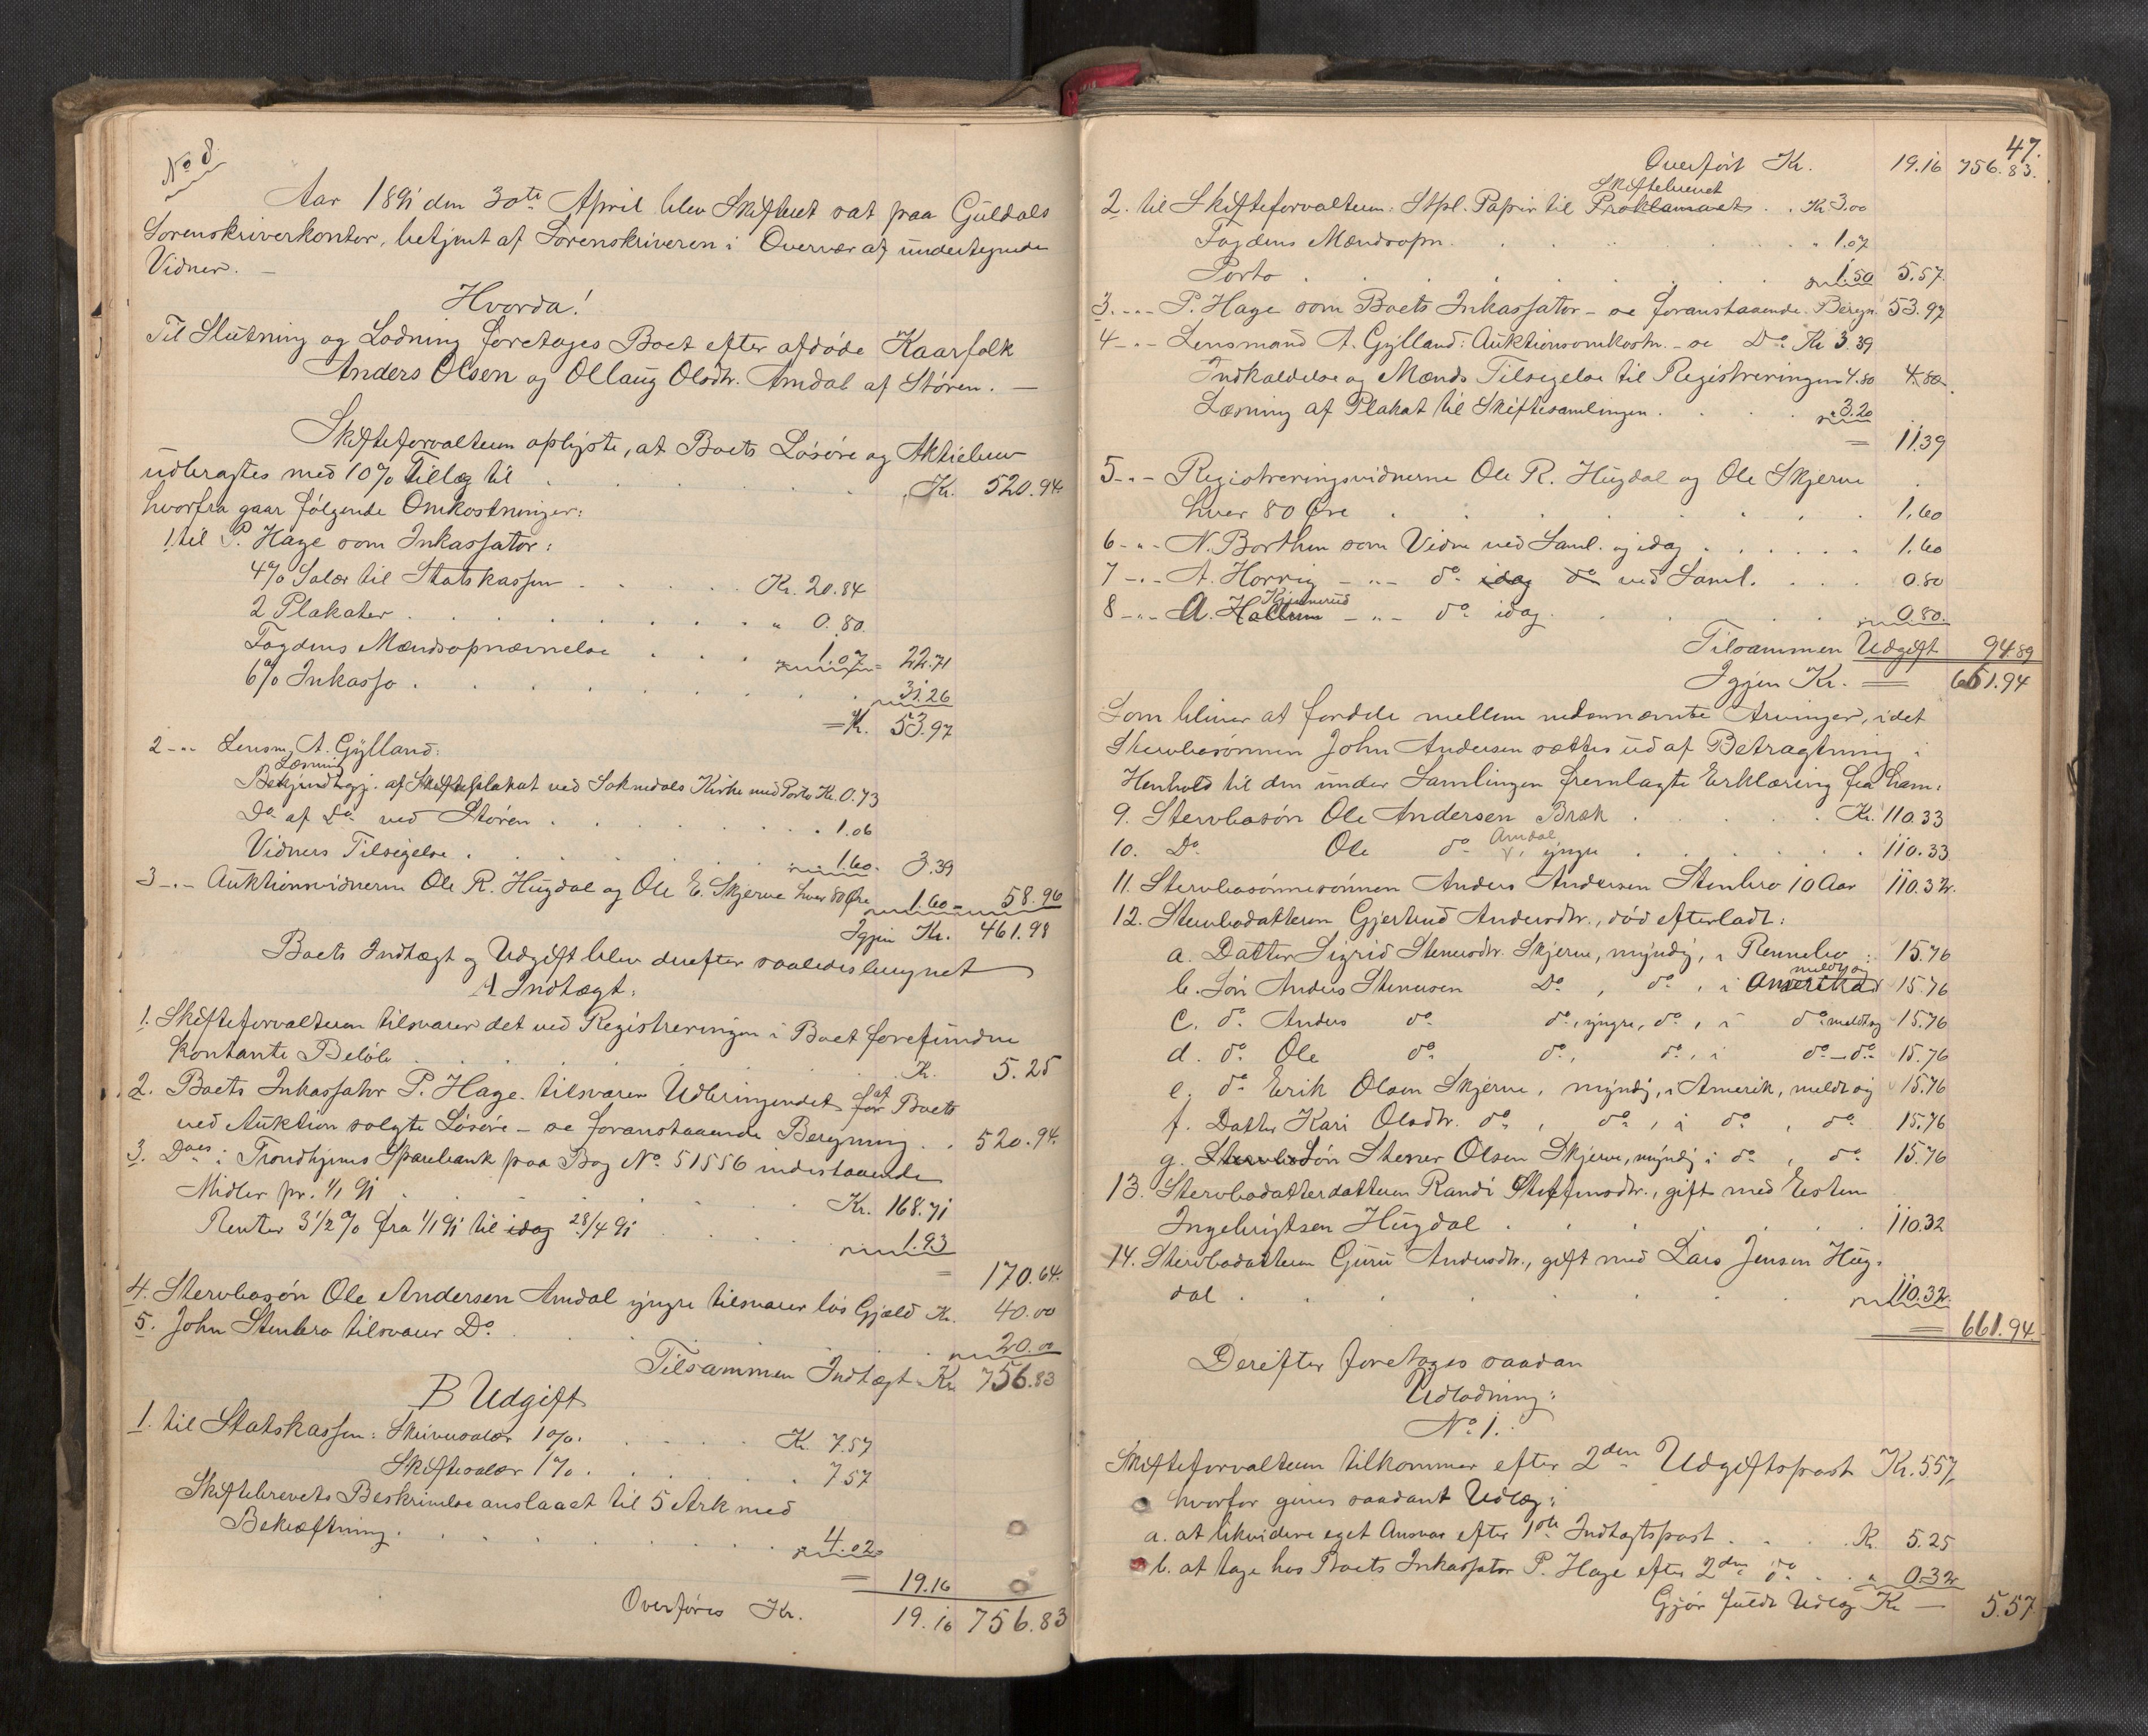 No 8.
Aar 1891 den 30te April blev Skifteret sat paa Guldals
Sorenskriverkontor, betjent af Sorenskriveren i Overvær af undertegnede
Vidner. —
Hvorda!
Til Slutning og Lodning foretages Boet efter afdøde Kaarfolk
Anders Olsen og Ollaug Olsdtr. Amdal af Støren. —
Skifteforvalteren oplyste, at Boets Løsøre og Aktiebrev
udbragtes med 10% Tillæg til . . . Kr. 520.94.
hvorfra gaar følgende Omkostninger:
1. til P. Hage som Inkassator:
4% Salær til Statskassen . . . Kr. 20.84
2 Plakater . . . " 0.80.
Fogdens Mændsopnævnelse . . . 1.07 = 22.71
6% Inkasso . . . 31.26
= Kr. 53.97
2 -"- Lensm. A. Gylland:
Læsning
Bekjendtgj. af Skifteplakat ved Soknedals Kirke med Porto Kr. 0.73
Do af Do ved Støren . . . 1.06
Vidners Tilsigelse . . . 1.60. 3.39
3 -"- Auktionsvidnerne Ole R. Hugdal og Ole E. Skjerve hver 80 Øre 1.60 = 58.96
Igjen Kr. 461.98
Boets Indtægt og Udgift blev derefter saaledes beregnet
A Indtægt:
1. Skifteforvalteren tilsvarer det ved Registreringen i Boet forefundne
kontante Beløb . . . Kr. 5.25
2. Boets Inkassator P. Hage tilsvarer Udbringendet af for Boets
ved Auktion solgte Løsøre – se foranstaaende Beregning . . 520.94.
3. Do es i Trondhjems Sparebank paa Bog No 51556 indestaaende
Midler pr. 1/1 91 . . . Kr. 168.71
Renter 3 1/2 % fra 1/1 91 til idag 28/4 91 . . . 1.93
= 170.64.
4. Stervbosøn Ole Andersen Amdal yngre tilsvarer løs Gjæld Kr. 40.00
5. John Stenbro tilsvarer Do . . . 20.00
Tilsammen Indtægt Kr. 756.83
B Udgift
1. til Statskassen: Skriversalær 1%. . . . Kr. 7.57
Skiftesalær 1%. . . . 7.57
Skiftebrevets Beskrivelse anslaaet til 5 Ark med
Bekræftning . . . 4.02
= 19.16
Overføres Kr. 19.16 756.83
47.
Overført Kr. 19.16 756.83.
Skiftebrevet
2. til Skifteforvalteren: Stpl. Papir til Proklamaets . . Kr 3.00
Fogdens Mændsopn. . . . " 1.07
Porto . . . 1.50 5.57
3. -"- P. Hage som Boets Inkassator – se foranstaaende Beregn. 53.97
4 -"- Lensmand A. Gylland: Auktionsomkostn. – se Do Kr 3.39
Indkaldelse og Mænds Tilsigelse til Registreringen 4.80 4.80
Læsning af Plakat til Skiftesamlingen . . . 3.20
= 11.39
5 -"- Registreringsvidnerne Ole R. Hugdal og Ole Skjerve
hver 80 Øre . . . 1.60
6 -"- N. Borthen som Vidne ved Saml. og idag . . . 1.60
7 -"- A. Horrig -"- do idag do ved Saml. . . . 0.80
Kjennerud
8 -"- A. Hallum -"- do idag . . . 0.80.
Tilsammen Udgift 94.89
Igjen Kr. = 661.94
Som bliver at fordele mellem nedennævnte Arvinger, idet
Stervbosønnen John Andersen sættes ud af Betragtning i
Henhold til den under Samlingen fremlagte Erklæring fra ham:
9. Stervbosøn Ole Andersen Bræk . . . Kr. 110.33
Amdal
10. Do Ole do , yngre . . . 110.33
11. Stervbosønnesønnen Anders Andersen Stenbro 10 Aar 110.32.
12. Stervbodatteren Gjertrud Andersdtr., død efterladt:
a. Datter Sigrid Stenersdtr. Skjerve, myndig, i Rennebo : 15.76
meldt sig
b. Søn Anders Stenersen Do , do , i Amerika 15.76
c. do Anders do do, yngre, do , i do meldt sig 15.76
d. do Ole do do, do, i do – do 15.76
e. do Erik Olsen Skjerve, myndig, i Amerik, meldt sig 15.76
f. Datter Kari Olsdtr. do , do , i do , do 15.76
g. Stervbo Søn Stener Olsen Skjerve, myndig i do , do 15.76
13. Stervbodatterdatteren Randi Steffensdtr., gift med Esten
Ingebrigtsen Hugdal . . . 110.32
14. Stervbodatteren Guru Andersdtr., gift med Lars Jensen Hug-
dal . . . 110.32.
= 661.94.
Derefter foretoges saadan
Udlodning:
No 1.
Skifteforvalteren tilkommer efter 2den Udgiftspost Kr. 5.57,
hvorfor gives saadant Udlæg:
a. at likvidere eget Ansvar efter 1ste Indtægtspost . . . Kr. 5.25
b. at tage hos Boets Inkassator P. Hage efter 2den do . . " 0.32
Gjør fuldt Udlæg Kr — 5.57